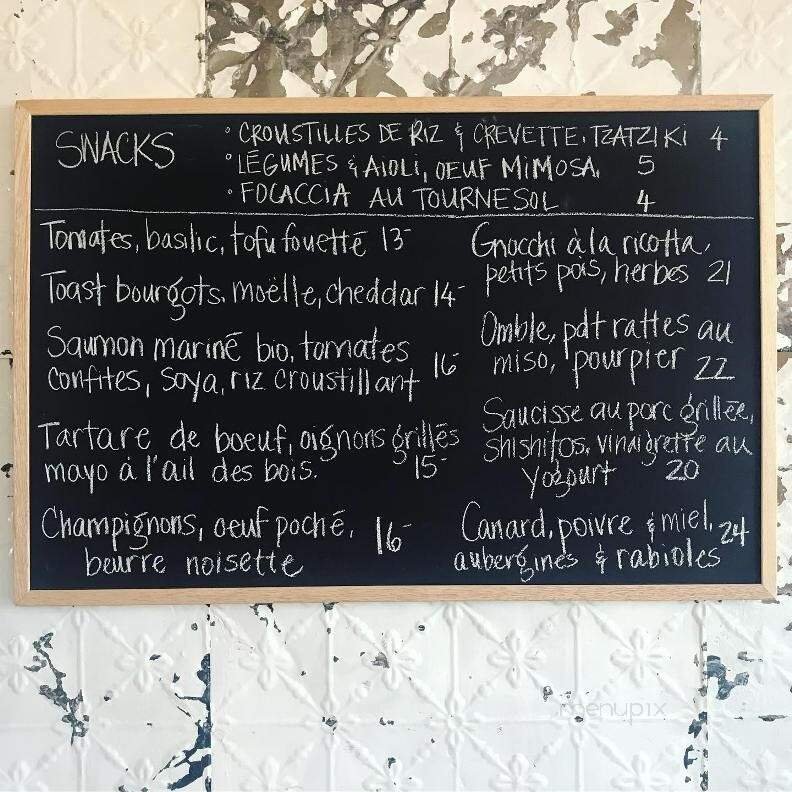 SNACKS
• CROUSTILLES DE RIZ & CREVETTE. TZATZIKI 4
• LÉGUMES & AIOLI, OEUF MIMOSA. 5
• FOCACCIA AU TOURNESOL 4
Tomates, basilic, tofu fouetté 13-
Toast bourgots, moëlle, cheddar 14-
Saumon mariné bio, tomates
confites, soya, riz croustillant 16-
Tartare de boeuf, oignons grillés
mayo à l'ail des bois. 15-
Champignons, oeuf poché,
beurre noisette 16-
Gnocchi à la ricotta,
petits pois, herbes 21
Omble, pdt rattes au
miso, pourpier 22
Saucisse au porc grillée,
shishitos, vinaigrette au
yogourt 20
Canard, poivre & miel,
aubergines & rabioles 24
menupix